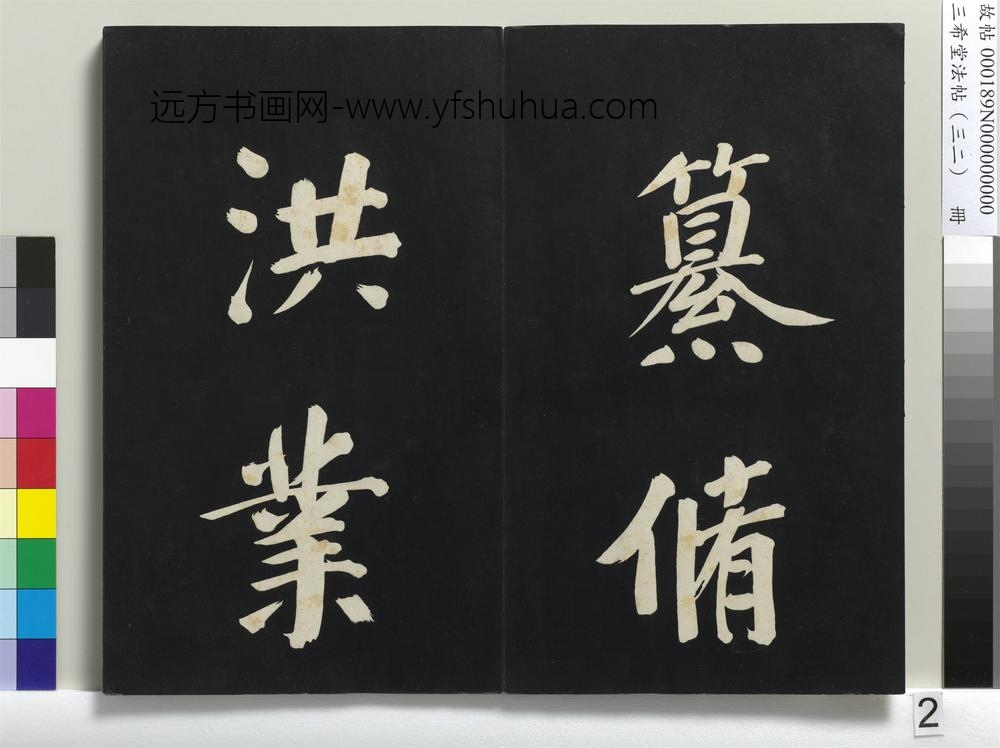 纂脩
洪業
远方书画网-www.yfshuhua.com
故帖 000189N000000000
三希堂法帖（三二） 冊
2